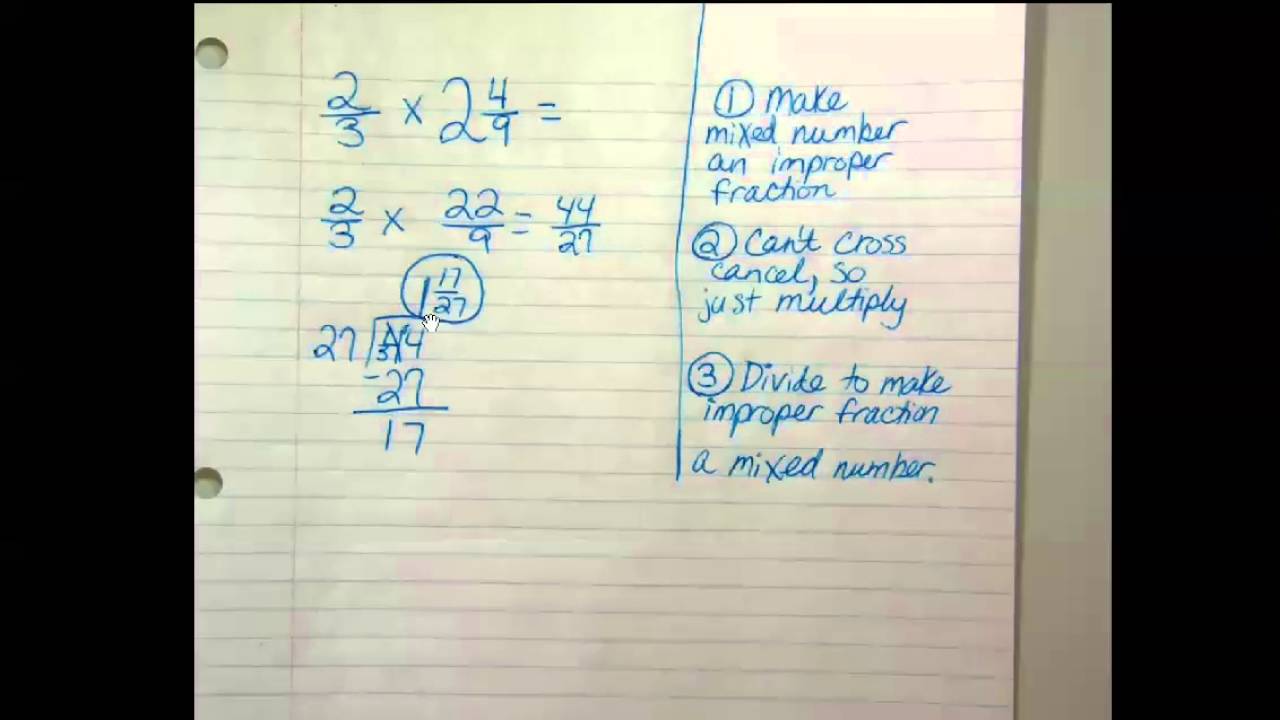 2/3 × 2 4/9 =
2/3 × 22/9 = 44/27
1 17/27
27 44
3 1
-27
17
① Make
mixed number
an improper
fraction
② Can't cross
cancel, so
just multiply
③ Divide to make
improper fraction
a mixed number.